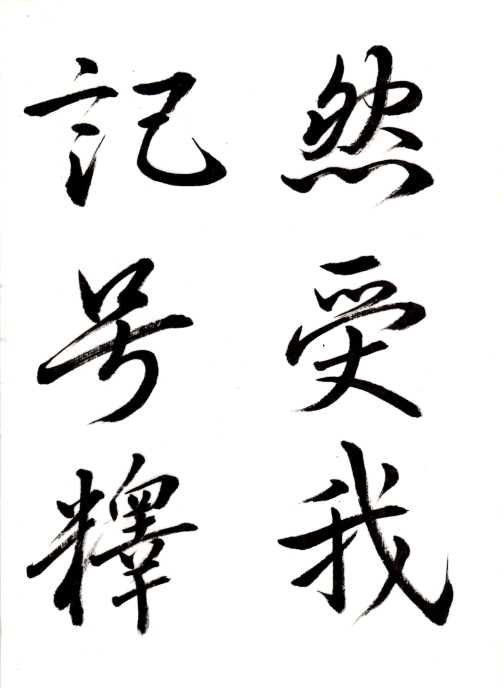 然受我
記号釋